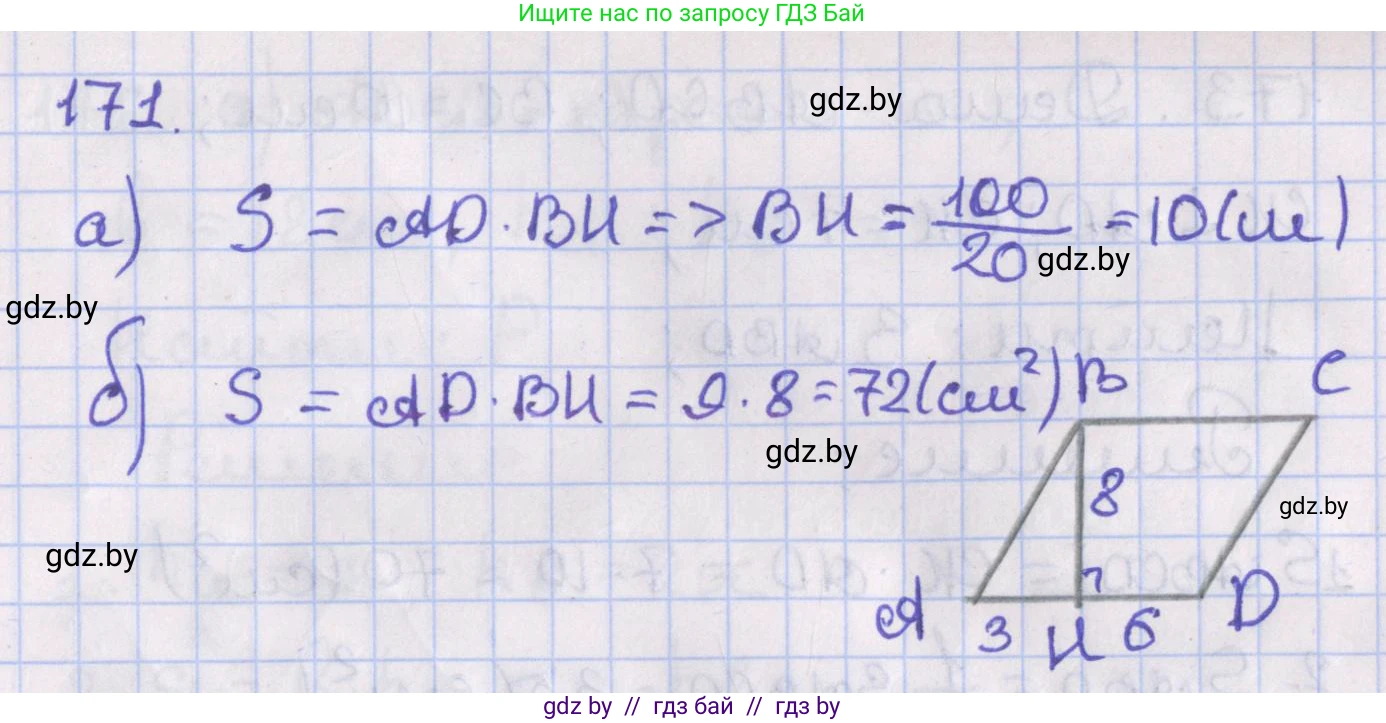 Ищите нас по запросу ГДЗ Бай
171.
gdz.by
а) S = AD · BH => BH = 100/20 = 10(см)
gdz.by
gdz.by
б) S = AD · BH = 9 · 8 = 72(см²)
B C
gdz.by
8
gdz.by
gdz.by
A 3 H 6 D
gdz by // гдз бай // гдз by